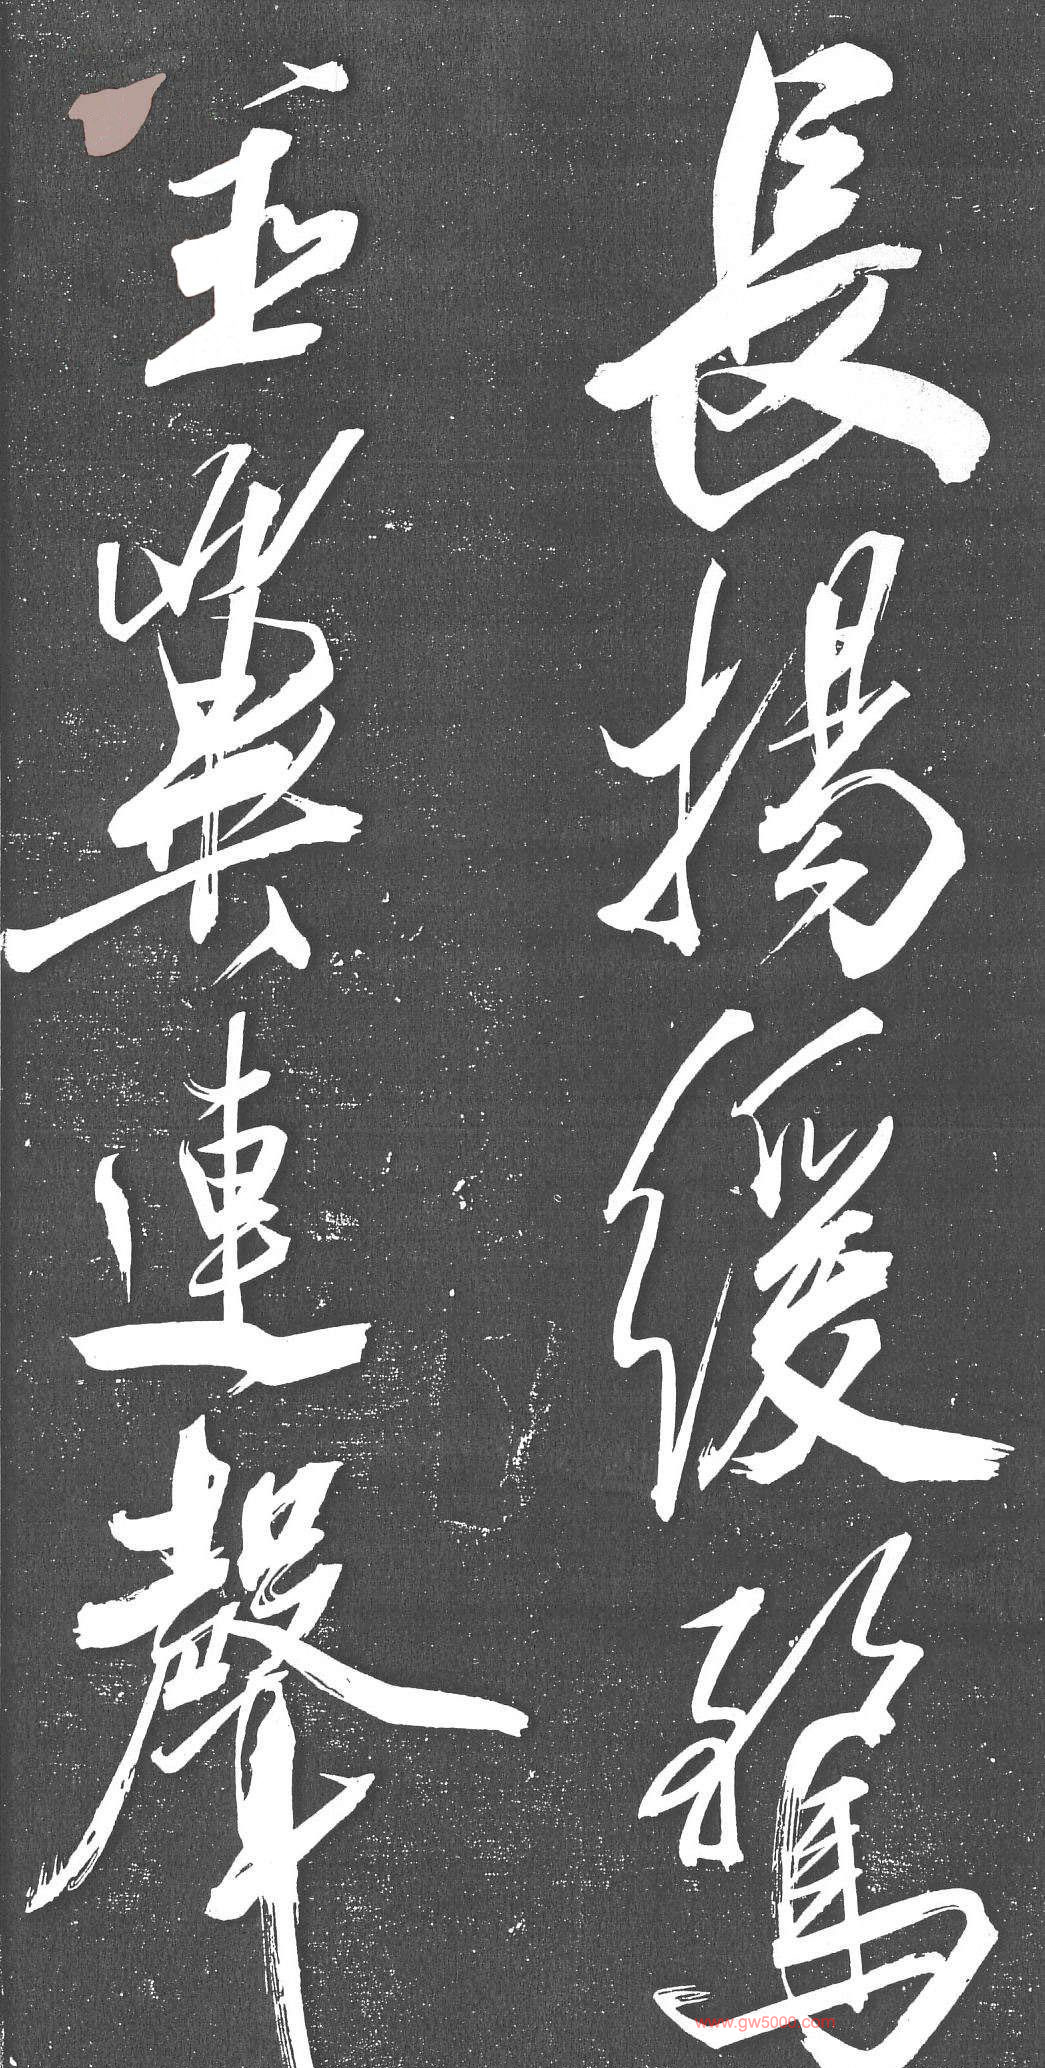 長揚緩騖
並翼連聲
www.gw5000.com